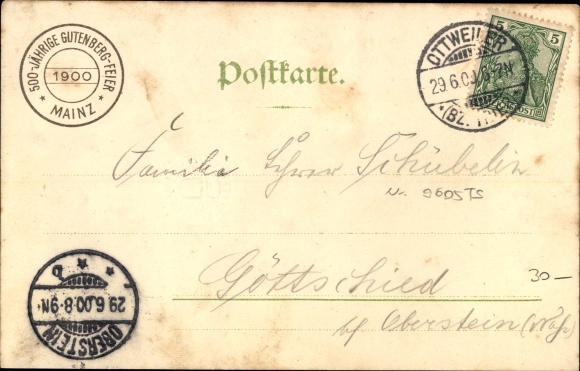 500-JÄHRIGE GUTENBERG-FEIER
1900
* MAINZ *
Postkarte.
5 5
OTTWEILER
29.6.00. 6-7N
*(BZ. TRIER)*
Familie Lehrer Schübelin
N. 9605TS
Göttschied
30-
bei Oberstein (Nahe)
OBERSTEIN
29.6.00.8-9N.
* * b